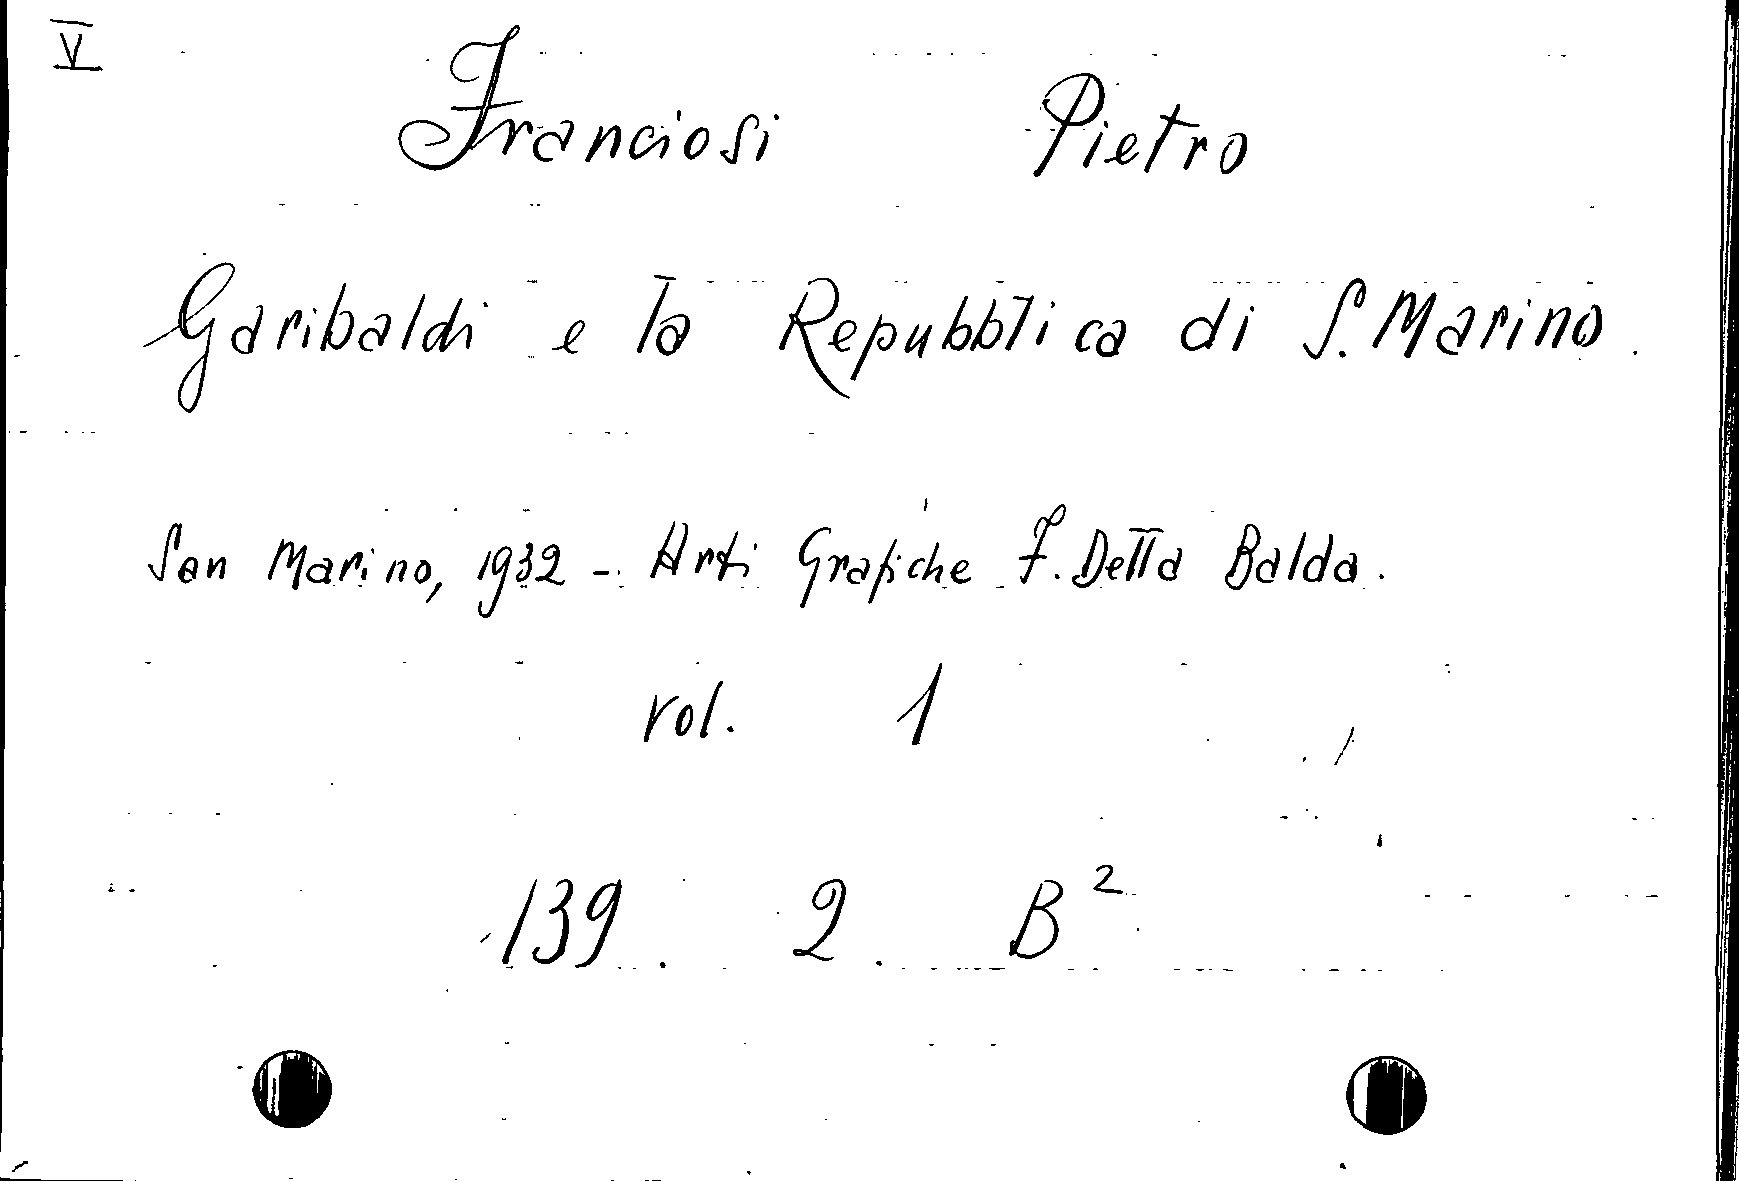 V
Franciosi Pietro
Garibaldi e la Repubblica di S. Marino.
San Marino, 1932 - Arti Grafiche F. Della Balda.
vol. 1
139. 2. B²